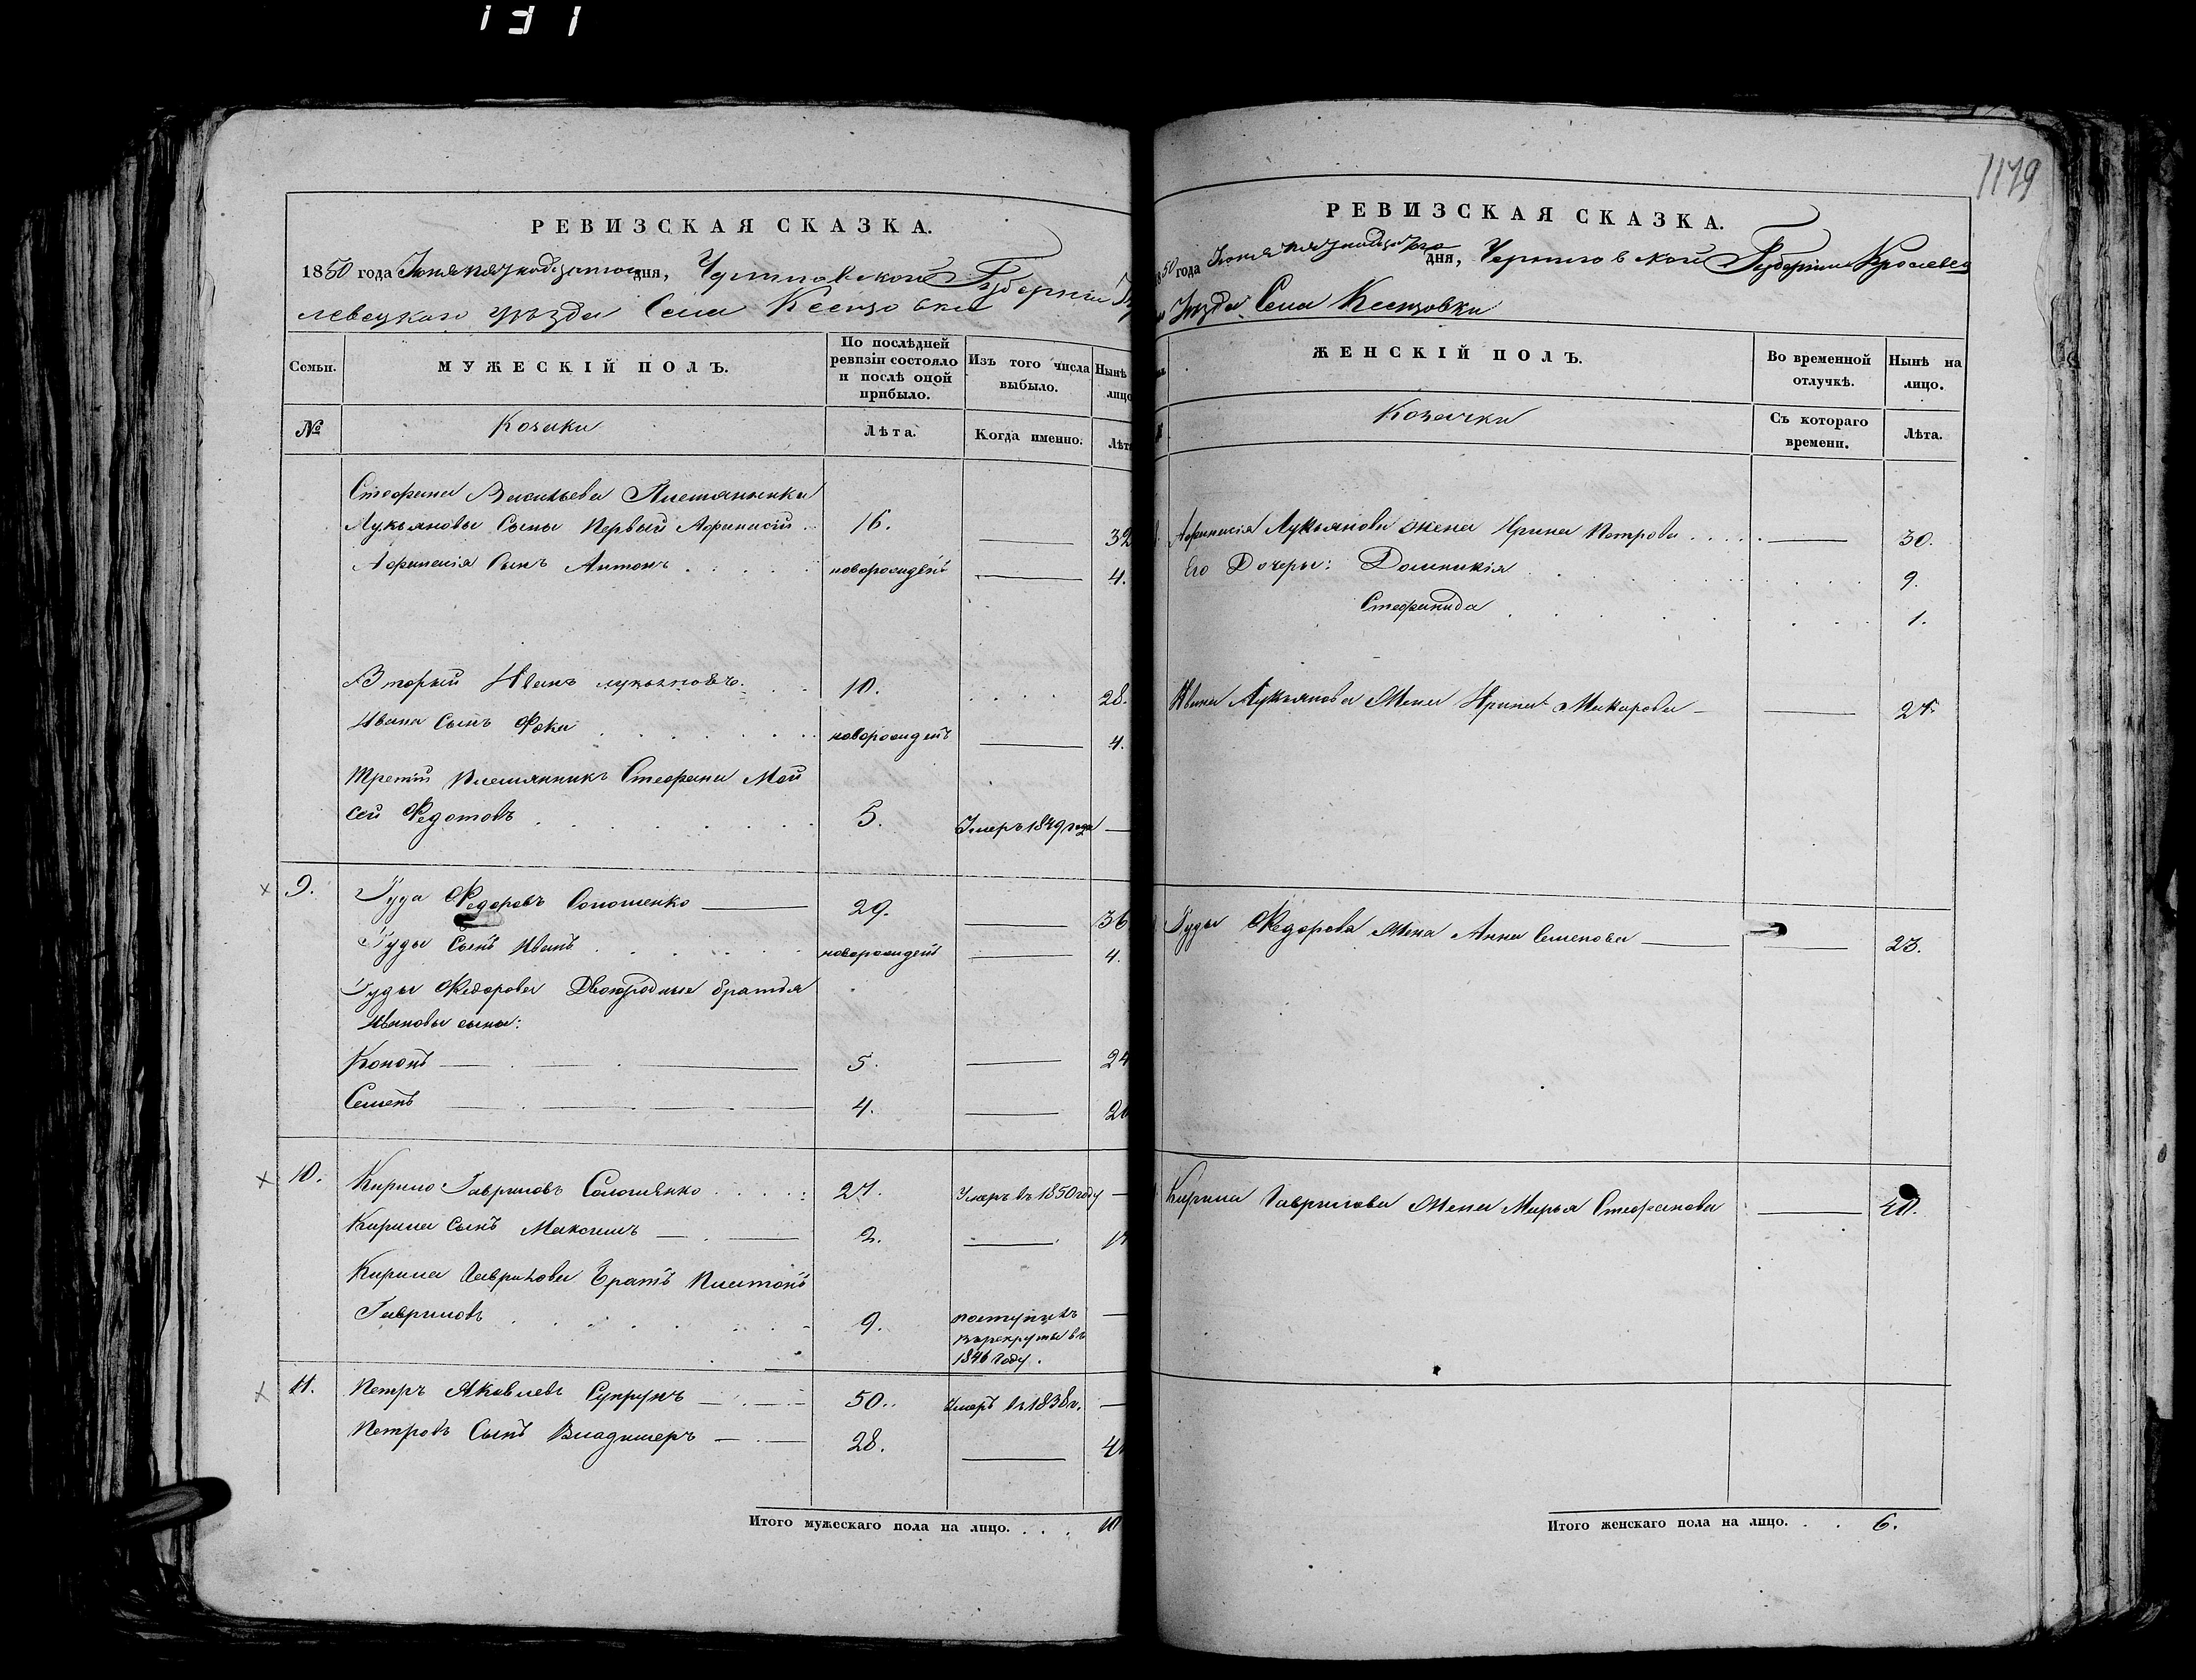 1179
РЕВИЗСКАЯ СКАЗКА.
1850 года Іюня пятнадцатого дня, Черниговской Губерніи
левецкаго уѣзда Села Ксензовки
Семьи.
МУЖЕСКІЙ ПОЛЪ.
По послѣдней ревизіи состояло и послѣ оной прибыло.
Изъ того числа выбыло.
Нынѣ лицо
№
Козаки
Лѣта.
Когда именно.
Лѣт
Стефана Васильева Племянника
Лукьяновы Сыны Первый Афанасій . 16. — 32
Афанасія Сынъ Антонъ . . . . новорожденъ — 4.
Вторый Иванъ Лукьяновъ. . . 10. . . . . 28.
Ивана Сынъ Фока . . . . . . . новорожденъ — 4.
Третій Племянникъ Стефана Мои
сей Федотовъ . . . . . . . . 5. Умеръ 1849 года —
9. Іуда Федоровъ Соломенко — 29. — 36
Іуды Сынъ Иванъ . . . . . . новорожденъ — 4.
Іуды Федорова Двоюродные братья
Ивановы сыны:
Кононъ — 5. — 24
Семенъ — 4. — 20
10. Кирило Гавриловъ Соломенко . . . . : 27. Умеръ въ 1850 году —
Кирила Сынъ Максимъ — 2. — 1
Кирила Гаврилова Братъ Платонъ
Гавриловъ . . . . . . . 9. поступилъ —
въ рекруты въ
1846 году.
11. Петръ Яковлевъ Супрунъ — 50. Умеръ въ 1838 г. —
Петровъ Сынъ Владимеръ — 28. — 4
Итого мужескаго пола на лицо. . . . 10
РЕВИЗСКАЯ СКАЗКА.
1850 года Іюня пятнадцатого дня, Черниговской Губерніи Кролевец
Уѣзда Села Ксензовки
ЖЕНСКІЙ ПОЛЪ.
Во временной отлучкѣ.
Нынѣ на лицо.
Козачки
Съ котораго времени.
Лѣта.
Афанасія Лукьянова жена Ирина Петрова . . . . . — 30.
Его Дочери: Домникія . . . . . . . 9.
Стефанида . . . . . . . . . 1.
Ивана Лукьянова Жена Ирина Макарова — — 27.
Іуды Федорова Жена Анна Семенова — — 23.
Кирила Гаврилова Жена Марья Стефанова — 40.
Итого женскаго пола на лицо. . . 6.